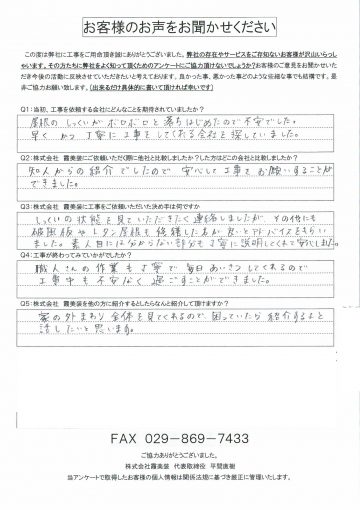 お客様のお声をお聞かせください
この度は弊社に工事をご用命頂き誠にありがとうございました。弊社の存在やサービスをご存知ないお客様が沢山いらっしゃいます。その方たちに弊社をよく知って頂くためのアンケートにご協力頂けないでしょうか?お客様のご意見をお聞かせいただき今後の活動に反映させていただきたいと考えております。良かった事、悪かった事どのような些細な事でも結構です。是非ご協力お願い致します。(出来るだけ具体的に書いて頂ければ幸いです)
Q1:当初、工事を依頼する会社にどんなことを期待されていましたか?
屋根のしっくいがボロボロと落ちはじめたので不安でした。
早くかつ丁寧に工事をしてくれる会社を探していました。
Q2:株式会社 霞美装にご依頼いただく際に他社と比較しましたか?した方はどこの会社と比較しましたか?
知人からの紹介でしたので安心して工事をお願いすることが
できました。
Q3:株式会社 霞美装に工事をご依頼いただいた決め手は何ですか
しっくいの状態を見ていただきたく連絡しましたが、その他にも
破風板やトタン屋根も修繕した方が良いとアドバイスをもらい
ました。素人目には分からない部分も丁寧に説明してくれて安心しました。
Q4:工事が終わってみていかがでしたか?
職人さんの作業も丁寧で毎日あいさつしてくれるので
工事中も不安なく過ごすことができました。
Q5:株式会社 霞美装を他の方に紹介するとしたらなんと紹介して頂けますか?
家の外まわり全体を見てくれるので、困っていたら紹介するよと
話したいと思います。
FAX 029-869-7433
ご協力ありがとうございました。
株式会社霞美装 代表取締役 平間直樹
当アンケートで取得したお客様の個人情報は関係法規に基づき厳正に管理いたします。